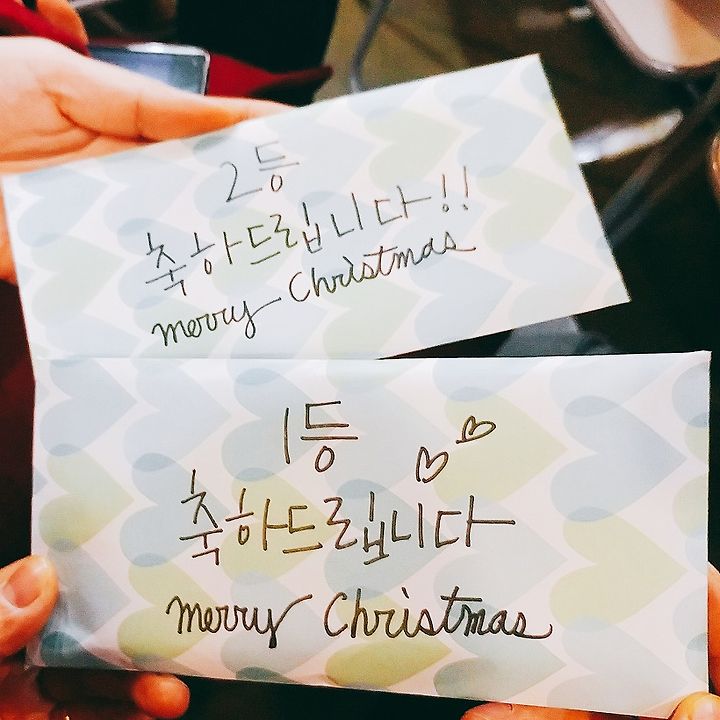 2등
축하드립니다!!
merry Christmas
1등
축하드립니다
merry Christmas